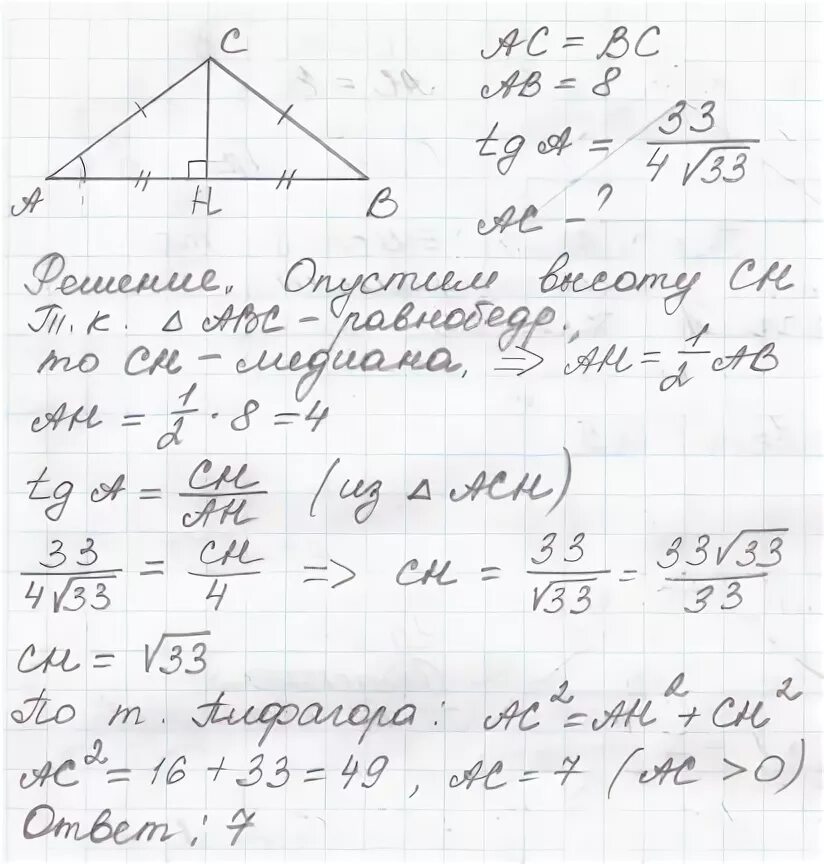 C
A
H
B
AC = BC
AB = 8
tg A = 33/(4√33)
AC - ?
Решение. Опустим высоту CH
Т.к. △ ABC – равнобедр.,
то CH – медиана, ⇒ AH = 1/2 AB
AH = 1/2 · 8 = 4
tg A = CH/AH (из △ ACH)
33/(4√33) = CH/4 ⇒ CH = 33/√33 = 33√33/33
CH = √33
По т. Пифагора: AC² = AH² + CH²
AC² = 16 + 33 = 49, AC = 7 (AC > 0)
Ответ: 7